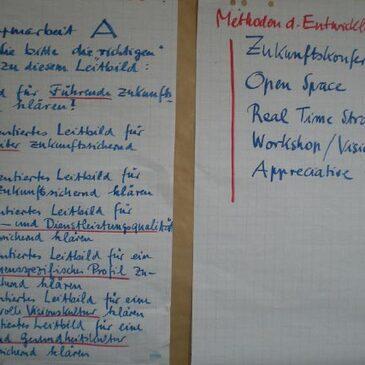 rmarbeit A
die bitte die "richtigen"
zu diesem Leitbild:
d für Führende zukunfts
klären!
entiertes Leitbild für
ter zukunftssichernd
entiertes Leitbild für
zukunftssichernd klären
ntiertes Leitbild für
- und Dienstleistungsqualität
sichernd klären
entiertes Leitbild für ein
ensspezifisches Profil zu-
chend klären
entiertes Leitbild für eine
volle Visionskultur klären
tiertes Leitbild für eine
nd Gesundheitskultur
sichernd klären
Methoden d. Entwickl
Zukunftskonfer
Open Space
Real Time Stra
Workshop / Visio
Appreciative